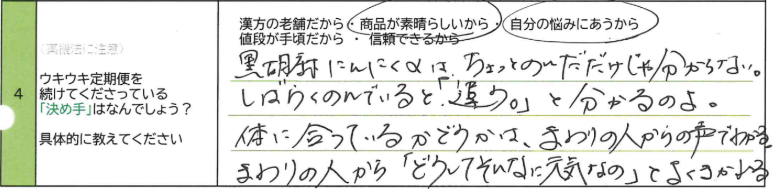 漢方の老舗だから・商品が素晴らしいから・自分の悩みにあうから
値段が手頃だから ・ 信頼できるから
(薬機法に注意)
4
ウキウキ定期便を
続けてくださっている
「決め手」はなんでしょう?
具体的に教えてください
黒胡麻にんにくαは、ちょっとのんだだけじゃ分からない。
しばらくのんでいると「違う。」と分かるのよ。
体に合っているかどうかは、まわりの人からの声でわかる。
まわりの人から「どうしてそんなに元気なの」とよくきかれる